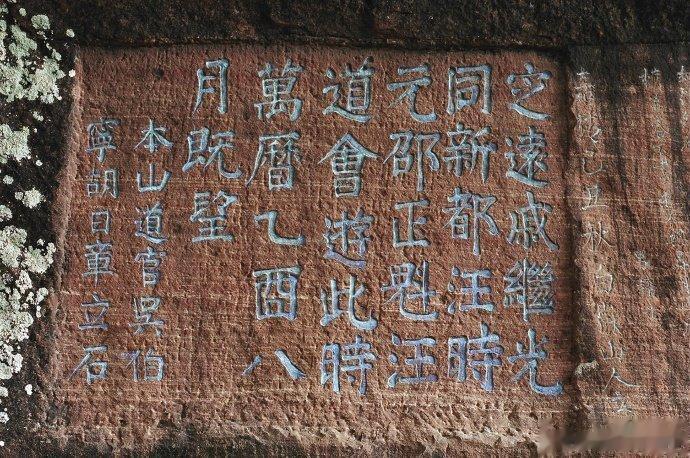 己丑秋山人
定遠戚繼光
同新都汪時
元邵正魁汪
道會遊此時
萬曆乙酉八
月既望
本山道官吳伯
寧胡日章立石